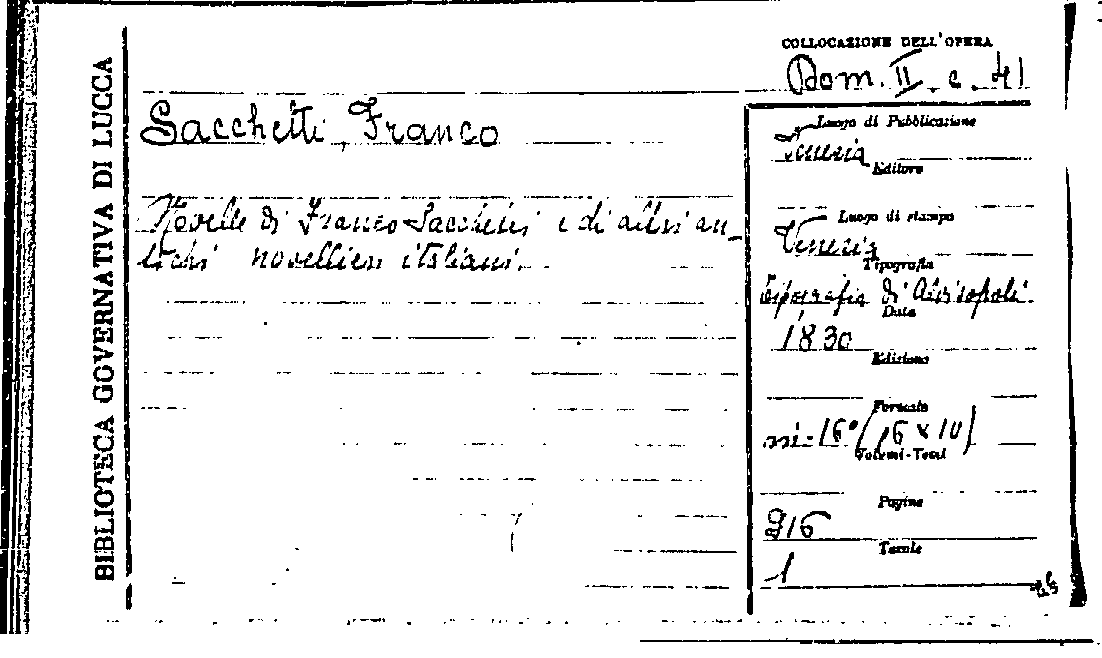 BIBLIOTECA GOVERNATIVA DI LUCCA
COLLOCAZIONE DELL'OPERA
Dom. II. c. 41
Sacchetti, Franco
Novelle di Franco Sacchetti e di altri an-
tichi novellieri italiani.
Luogo di Pubblicazione
Venezia
Editore
Luogo di stampa
Venezia
Tipografia
Tipografia di Alvisopoli
Data
1830
Edizione
Formato
in-16º (16 x 10)
Volumi-Tomi
Pagine
216
Tavole
1